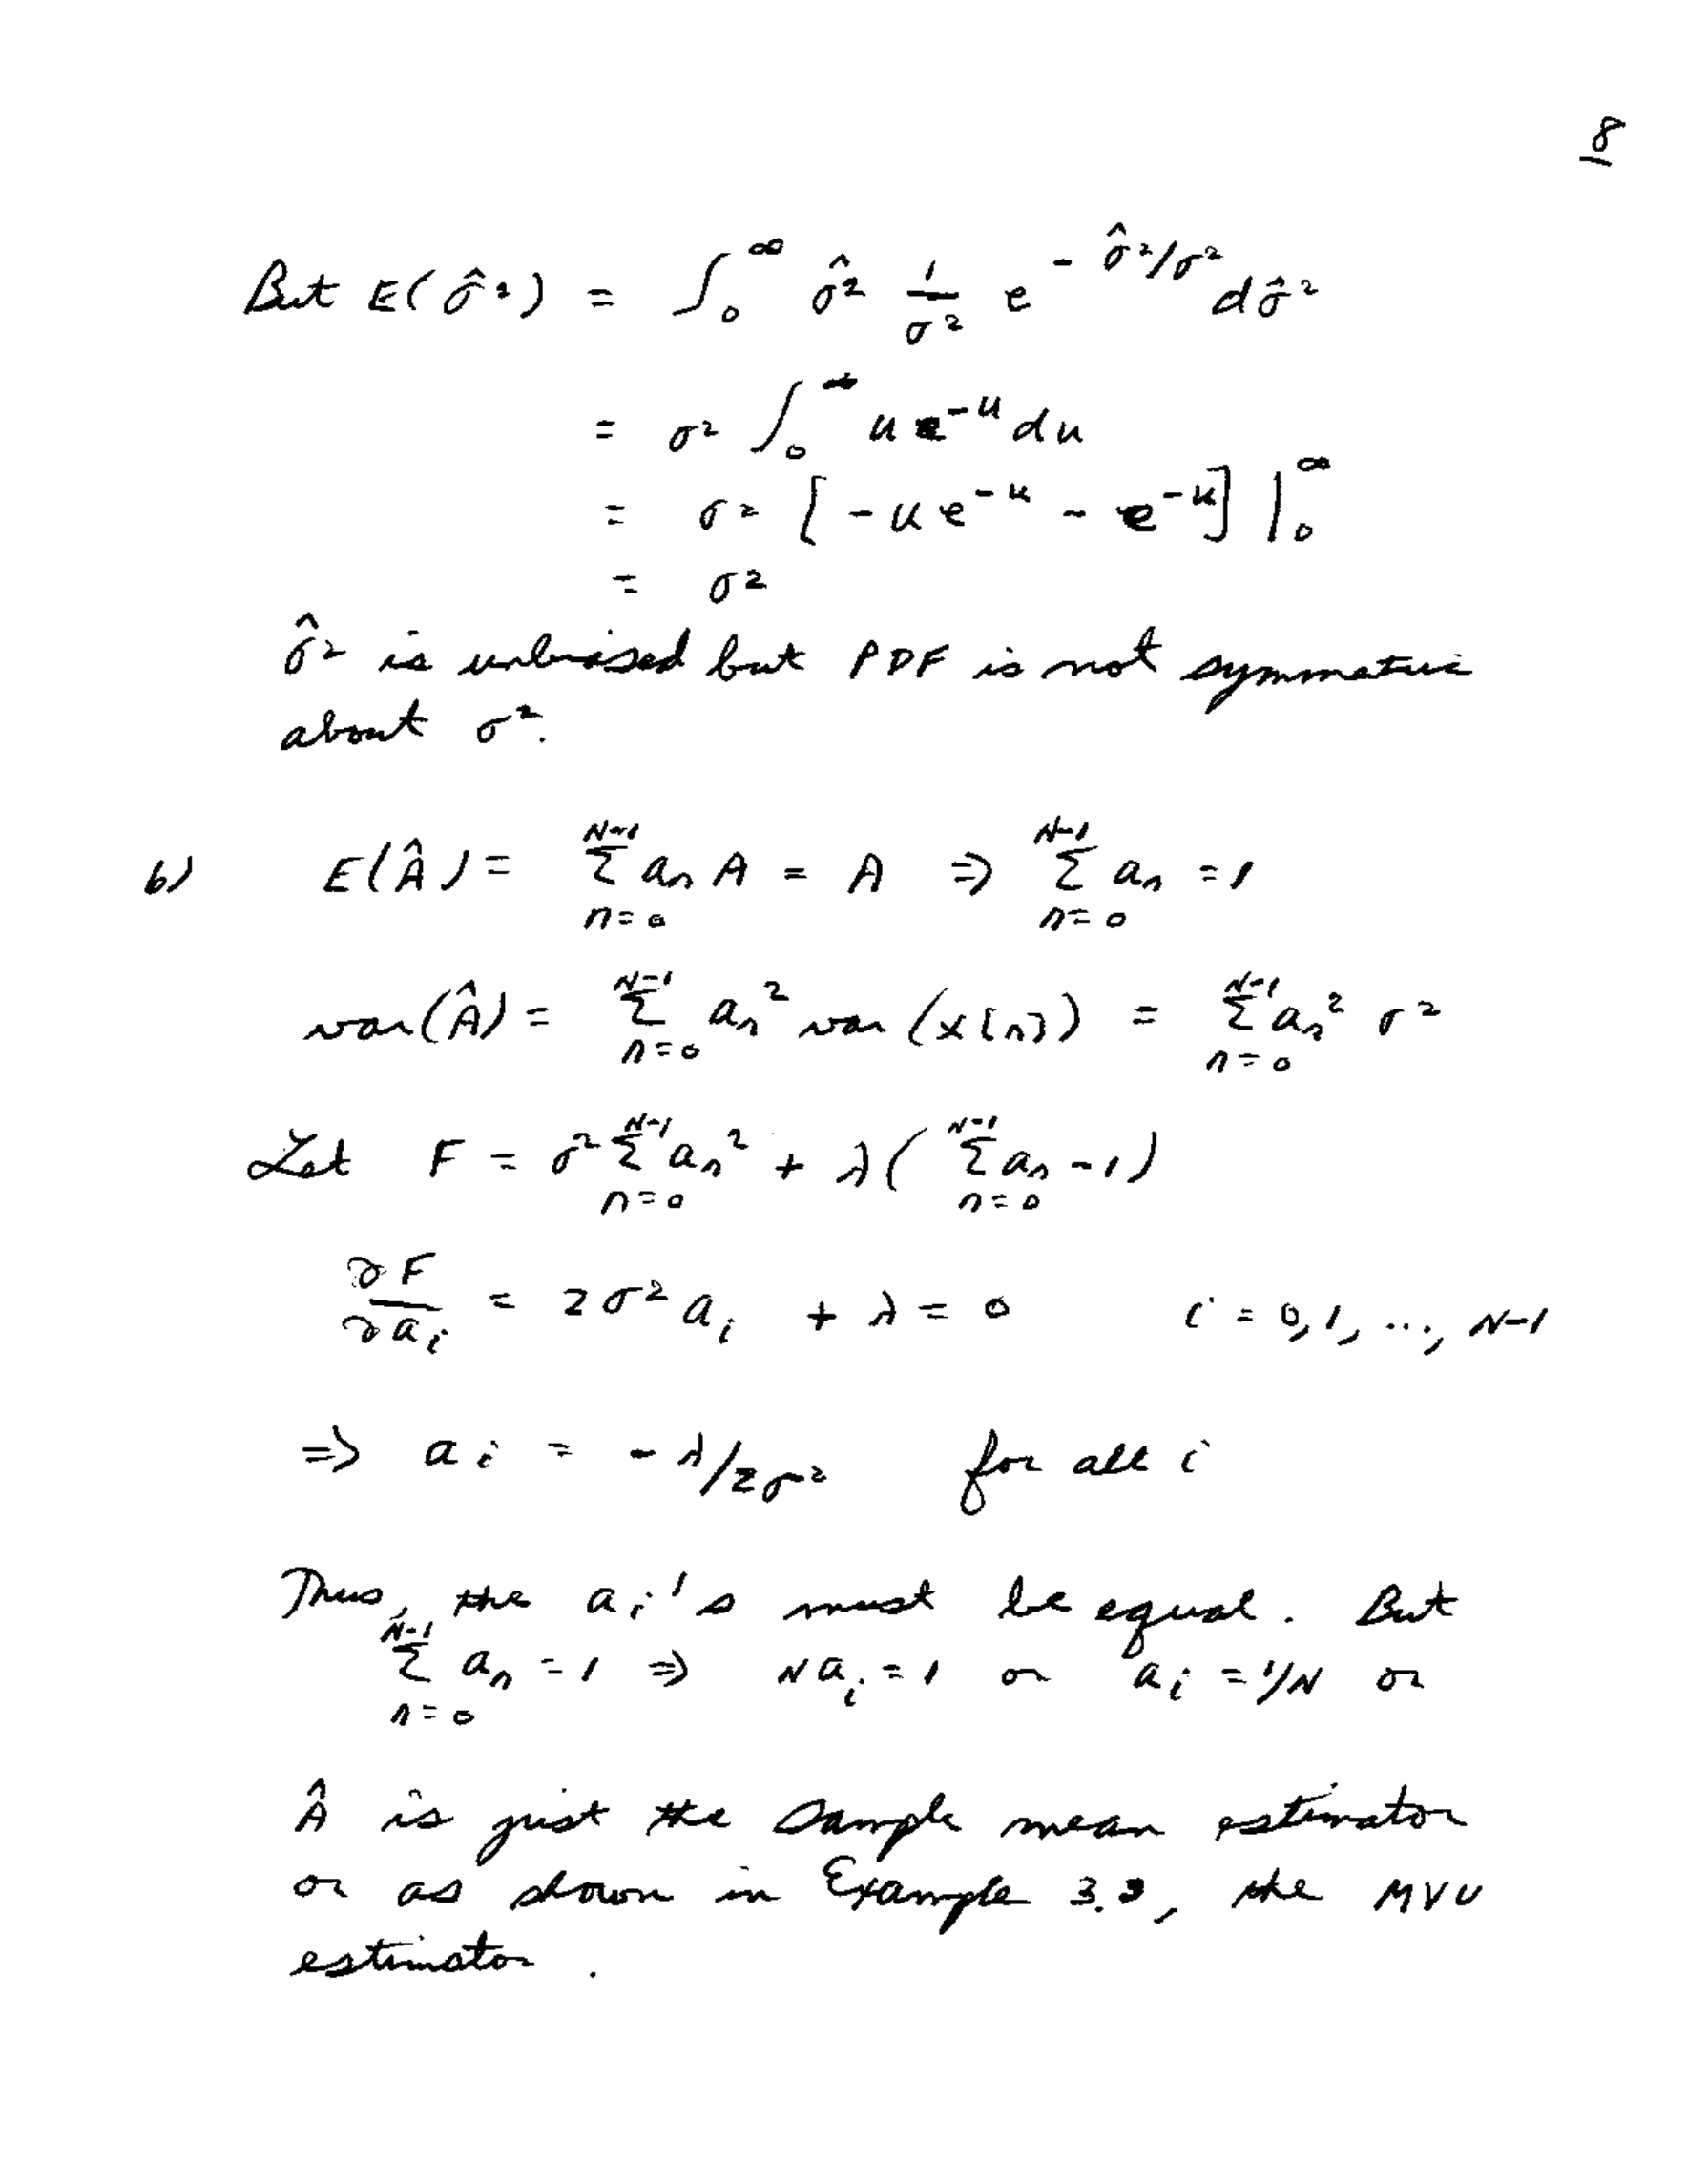 8
But E(σ̂²) = ∫₀^∞ σ̂² 1/σ² e^{-σ̂²/σ²} dσ̂²
= σ² ∫₀^∞ u e^{-u} du
= σ² [-u e^{-u} - e^{-u}] |₀^∞
= σ²
σ̂² is unbiased but PDF is not symmetric
about σ².
6) E(Â) = Σ_{n=0}^{N-1} aₙ A = A ⇒ Σ_{n=0}^{N-1} aₙ = 1
var(Â) = Σ_{n=0}^{N-1} aₙ² var(x[n]) = Σ_{n=0}^{N-1} aₙ² σ²
Let F = σ² Σ_{n=0}^{N-1} aₙ² + λ( Σ_{n=0}^{N-1} aₙ - 1)
∂F/∂aᵢ = 2σ² aᵢ + λ = 0 i = 0, 1, ..., N-1
⇒ aᵢ = -λ/2σ² for all i
Thus, the aᵢ's must be equal. But
Σ_{n=0}^{N-1} aₙ = 1 ⇒ Naᵢ = 1 or aᵢ = 1/N or
Â is just the sample mean estimator
or as shown in Example 3.3, the MVU
estimator.